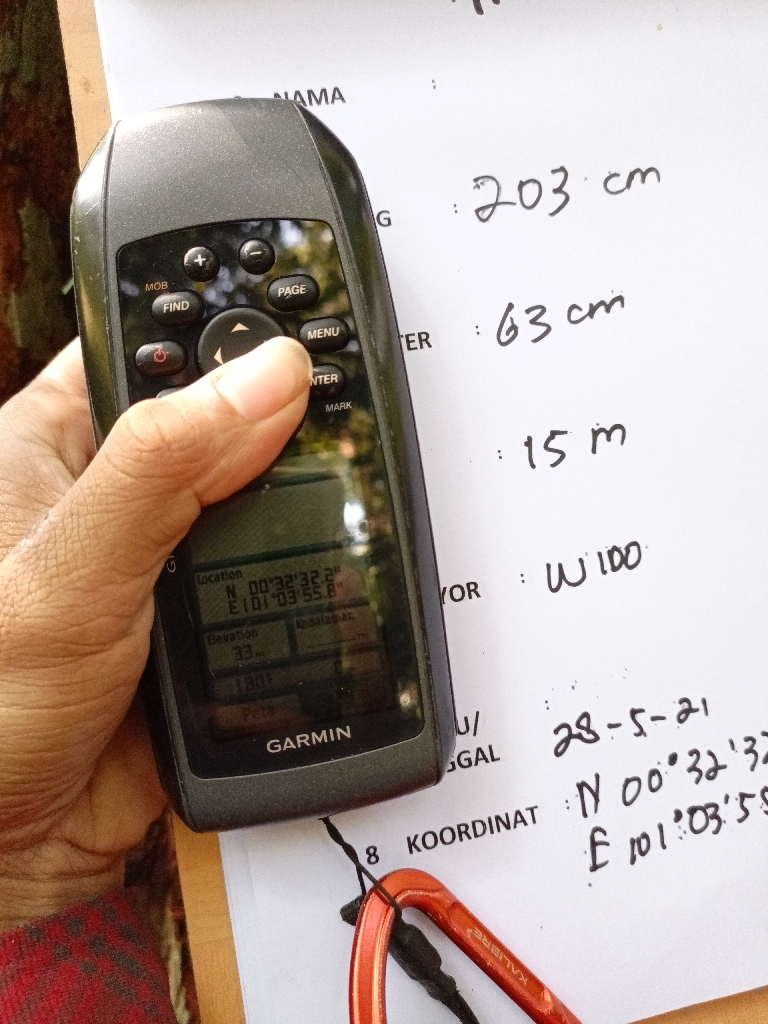 NAMA :
G : 203 cm
TER : 63 cm
: 15 m
YOR : W100
U/ :
GGAL 28-5-21
8 KOORDINAT : N 00°32'32
E 101°03'55
MOB
FIND
+
-
PAGE
MENU
NTER
MARK
Location
N 00°32'32.2"
E101°03'55.8"
Elevation
33
Peta
GARMIN
KALIBRE